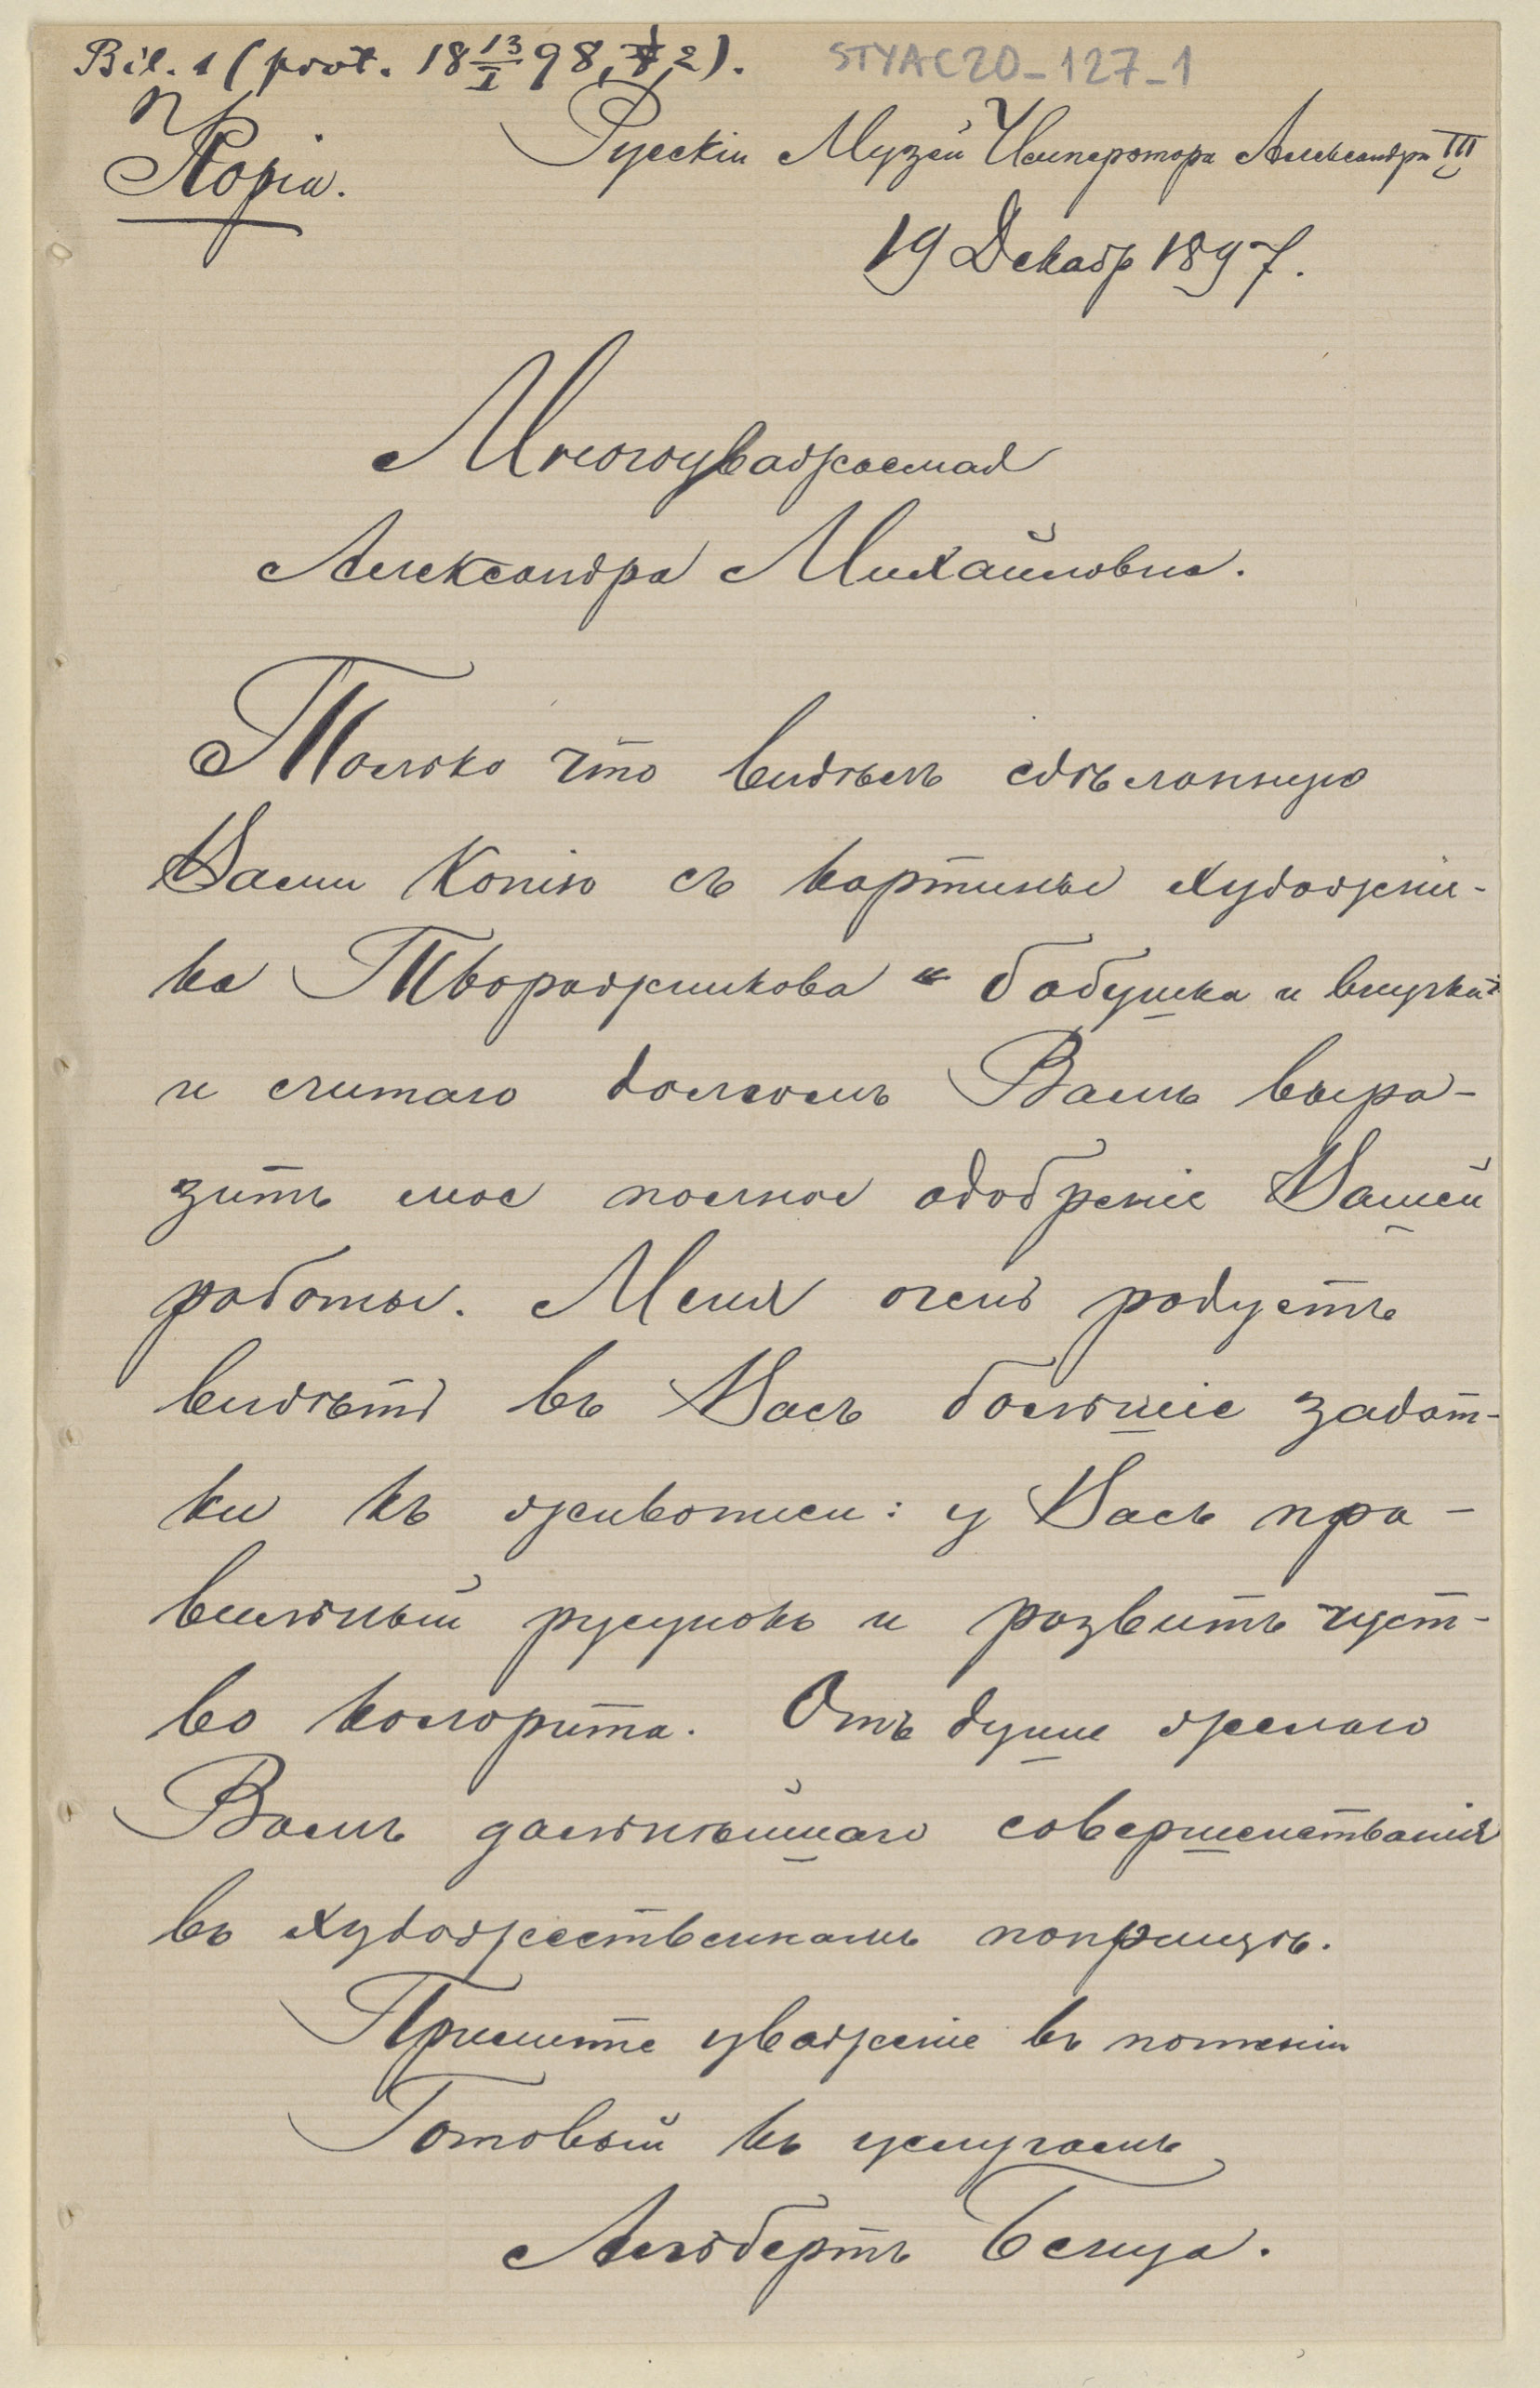 Bil. 1 (prot. 18 13/I 98, 2).
STYAC20_127_1
Копiя.
Русскiй Музей Императора Александра III
19 Декабр 1897.
Многоуважаемая
Александра Михайловна.
Только что видѣлъ сдѣланную
Вами Копiю съ картины художни-
ка Творожникова „бабушка и внучка"
и считаю долгомъ Вамъ выра-
зить мое полное одобренiе Вашей
работы. Меня очень радуетъ
видѣть въ Васъ большiе задат-
ки къ живописи: у Васъ пра-
вильный русунокъ и развитъ чуст-
во колорита. Отъ души желаю
Вамъ дальнѣйшаго совершенстванiя
въ художественномъ поприщѣ.
Примите уваженiе въ почтенiи
Готовый къ услугамъ
Альбертъ Бенуа.